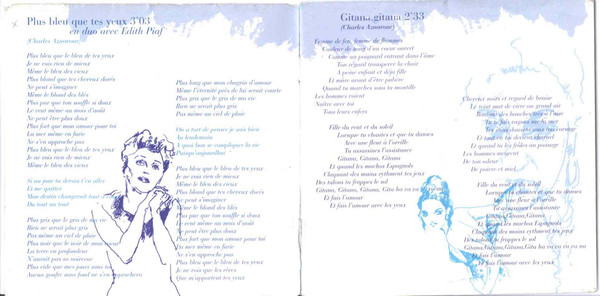 Plus bleu que tes yeux 3'03
en duo avec Edith Piaf
(Charles Aznavour)
Plus bleu que le bleu de tes yeux
Je ne vois rien de mieux
Même le bleu des cieux
Plus blond que tes cheveux dorés
Ne peut s'imaginer
Même le blond des blés
Plus pur que ton souffle si doux
Le vent même au mois d'août
Ne peut être plus doux
Plus fort que mon amour pour toi
La mer même en furie
Ne s'en approche pas
Plus bleu que le bleu de tes yeux
Je ne vois rien de mieux
Même le bleu des cieux
Si un jour tu devais t'en aller
Et me quitter
Mon destin changerait tout à coup
Du tout au tout
Plus gris que le gris de ma vie
Rien ne serait plus gris
Pas même un ciel de pluie
Plus noir que le noir de mon cœur
La terre en profondeur
N'aurait pas sa noirceur
Plus vide que mes jours sans toi
Aucun gouffre sans fond ne s'en approchera
Plus long que mon chagrin d'amour
Même l'éternité près de lui serait courte
Plus gris que le gris de ma vie
Rien ne serait plus gris
Pas même un ciel de pluie
On a tort de penser je sais bien
Au lendemain
A quoi bon se compliquer la vie
Puisqu'aujourd'hui
Plus bleu que le bleu de tes yeux
Je ne vois rien de mieux
Même le bleu des cieux
Plus blond que tes cheveux dorés
Ne peut s'imaginer
Même le blond des blés
Plus pur que ton souffle si doux
Le vent même au mois d'août
Ne peut être plus doux
Plus fort que mon amour pour toi
La mer même en furie
Ne s'en approche pas
Plus bleu que le bleu de tes yeux
Je ne vois que les rêves
Que m'apportent tes yeux
Gitana gitana 2'33
(Charles Aznavour)
Femme de feu, femme de flamme
Couleur de sang d'un cœur ouvert
Comme un poignard entrant dans l'âme
Ton regard transperce la chair
A peine enfant et déjà fille
Et mère avant d'être pubère
Quand tu marches sous ta mantille
Les hommes voient
Naître avec toi
Tous leurs enfers
Fille du vent et du soleil
Lorsque tu chantes et que tu danses
Avec une fleur à l'oreille
Tu ensorcelles l'assistance
Gitana, Gitana, Gitana
Et quand les mochos Espagnols
Claquant des mains rythment tes jeux
Des talons tu frappes le sol
Gitana, Gitana, Gitana, Gita ha na na na na
Et fais l'amour avec les yeux
Et fais l'amour avec les yeux
Cheveux noirs et regard de braise
Le teint mat de vivre au grand air
Et tout en toi devient charnel
Et quand tu les frôles en passant
Les hommes sentent
De ton odeur
De poivre et miel
Fille du vent et du soleil
Lorsque tu chantes et que tu danses
Avec une fleur à l'oreille
Tu ensorcelles l'assistance
Et quand les mochos Espagnols
Claquant des mains rythment tes jeux
Des talons tu frappes le sol
Gitana, Gitana, Gitana, Gita ha na na na na na
Et fais l'amour avec les yeux
Et fais l'amour avec les yeux